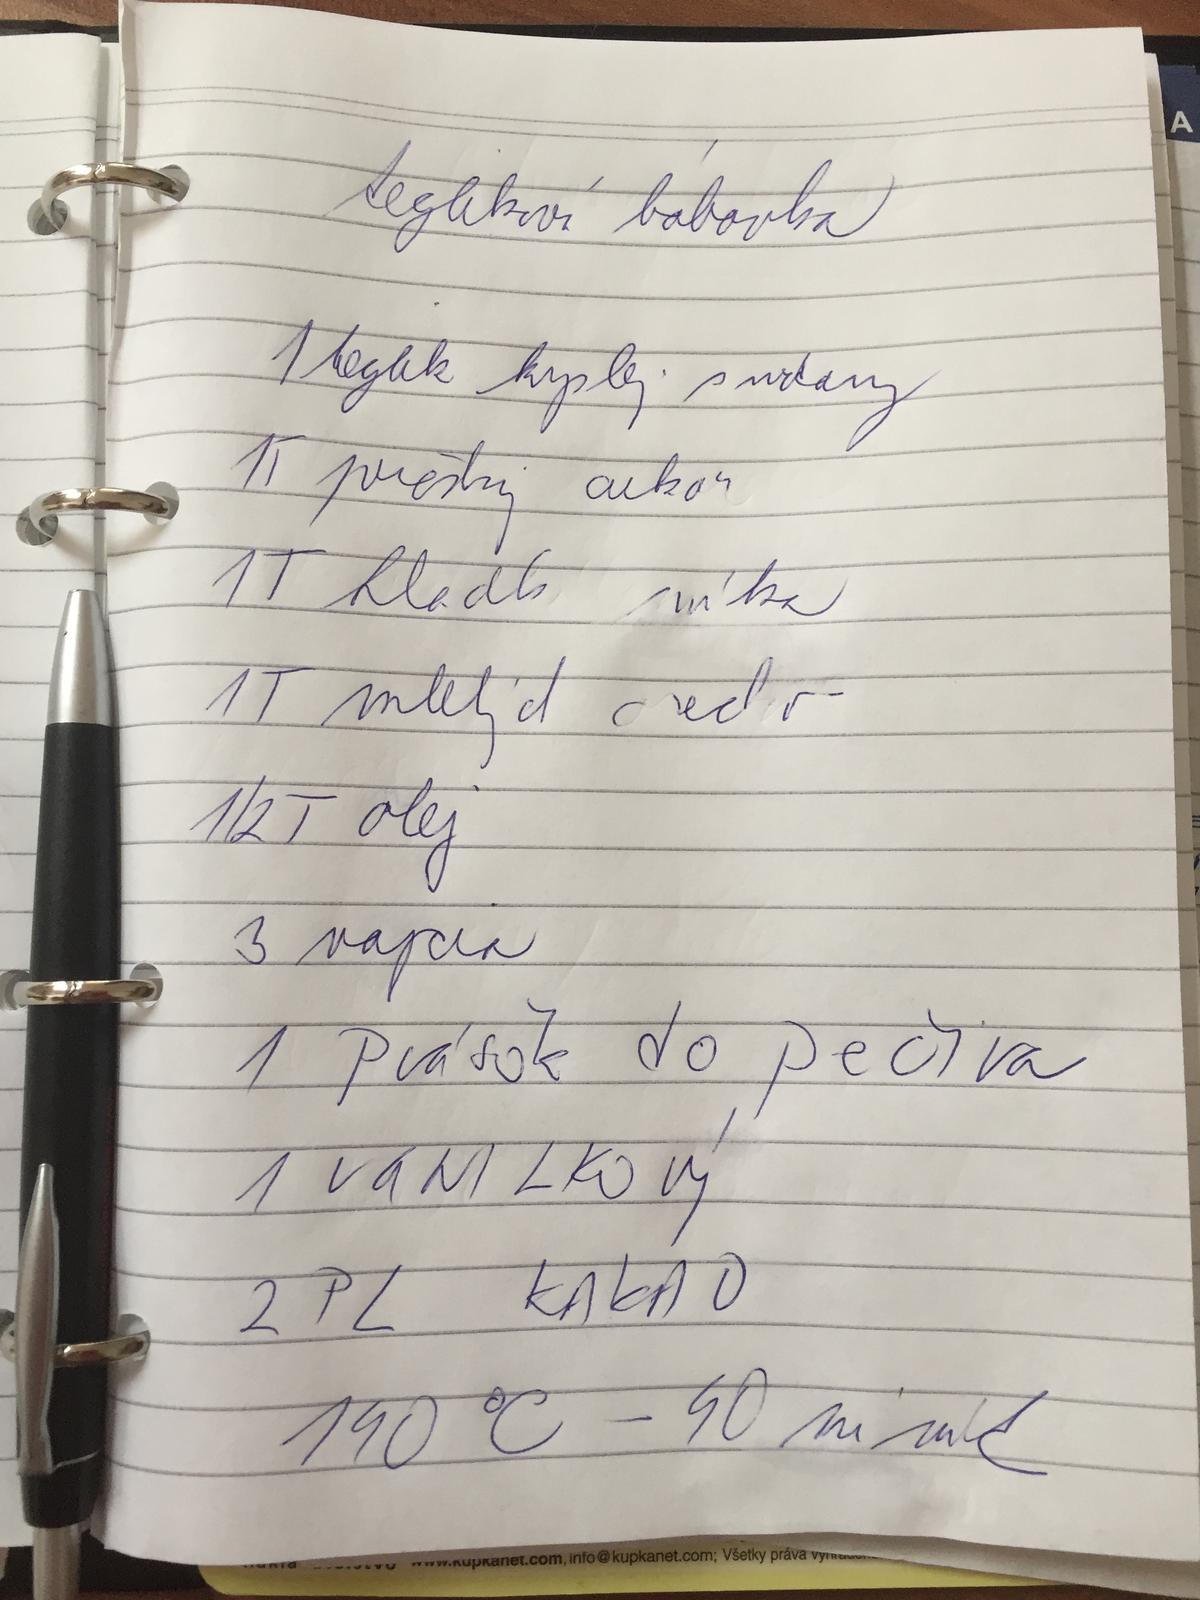 tegliková bábovka
1 teglik kyslej smotany
1T práškový cukor
1T hladká múka
1T mletých orechov
1/2T olej
3 vajcia
1 Prášok do pečiva
1 VANILKOVÝ
2 PL KAKAO
190 °C - 40 minút
A
www.kupkanet.com, info@kupkanet.com; Všetky práva